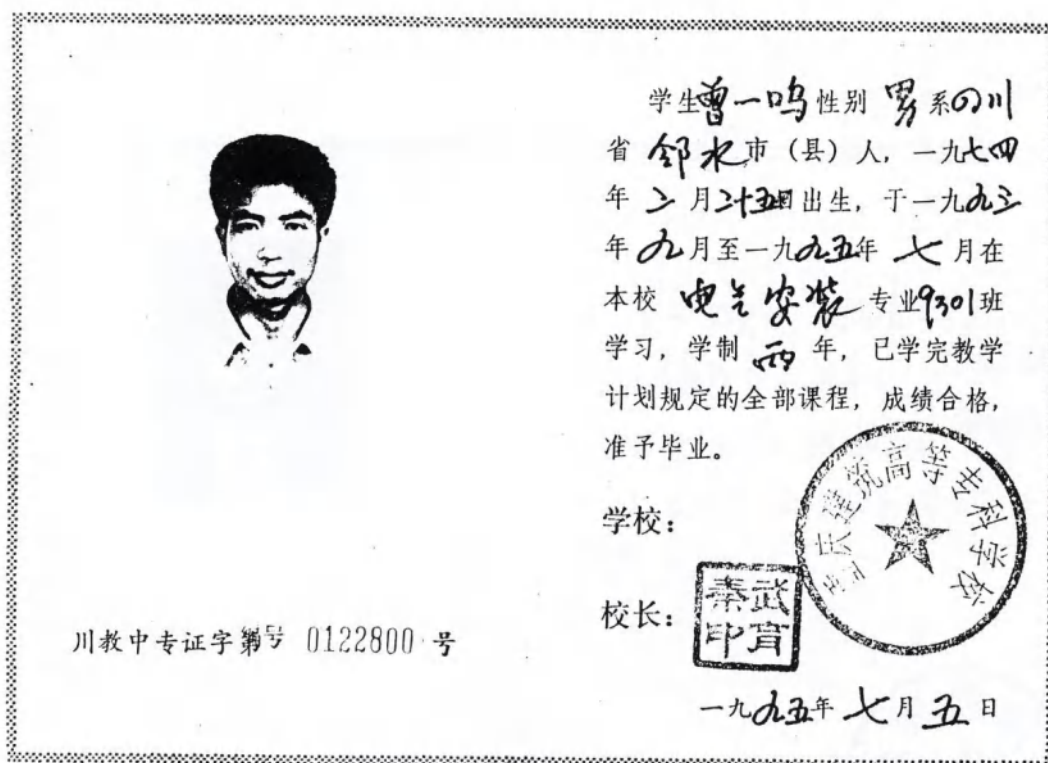 学生曾一鸣性别 男 系四川
省 邻水市（县）人，一九七四
年 二 月二十五日出生，于一九九三
年 九月至一九九五年 七 月在
本校 电气安装 专业9301班
学习，学制 两 年，已学完教学
计划规定的全部课程，成绩合格，
准予毕业。
学校：
重庆建筑高等专科学校
校长：
秦武
印育
一九九五年 七月 五 日
川教中专证字第 0122800 号